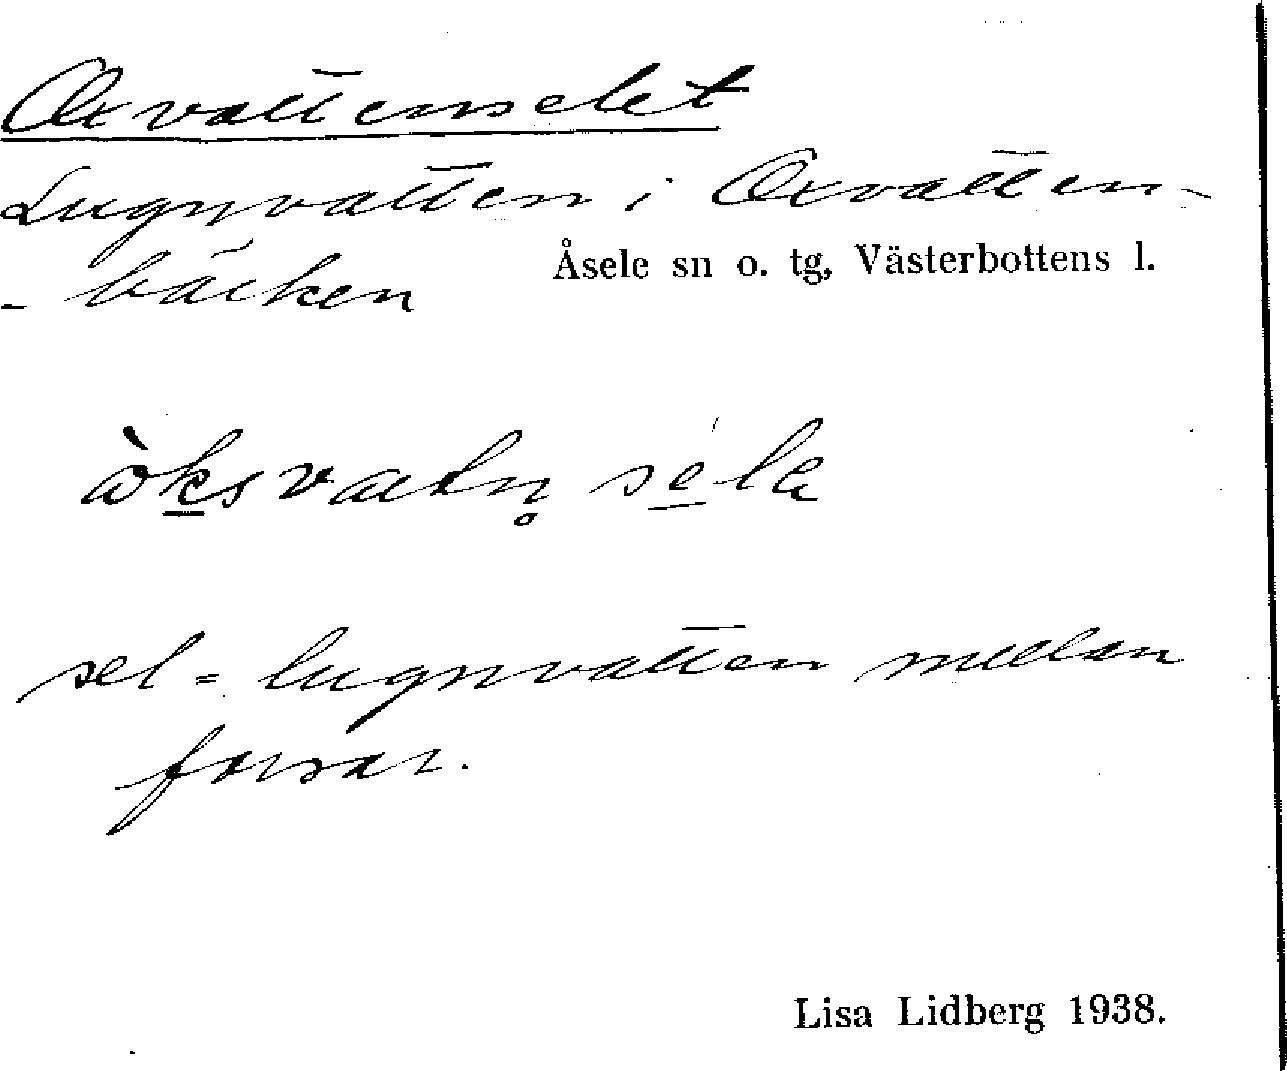 Oxvattenselet
Lugnvatten i Oxvatten-
- bäcken
Åsele sn o. tg, Västerbottens l.
sel = lugnvatten mellan
forsar.
Lisa Lidberg 1938.